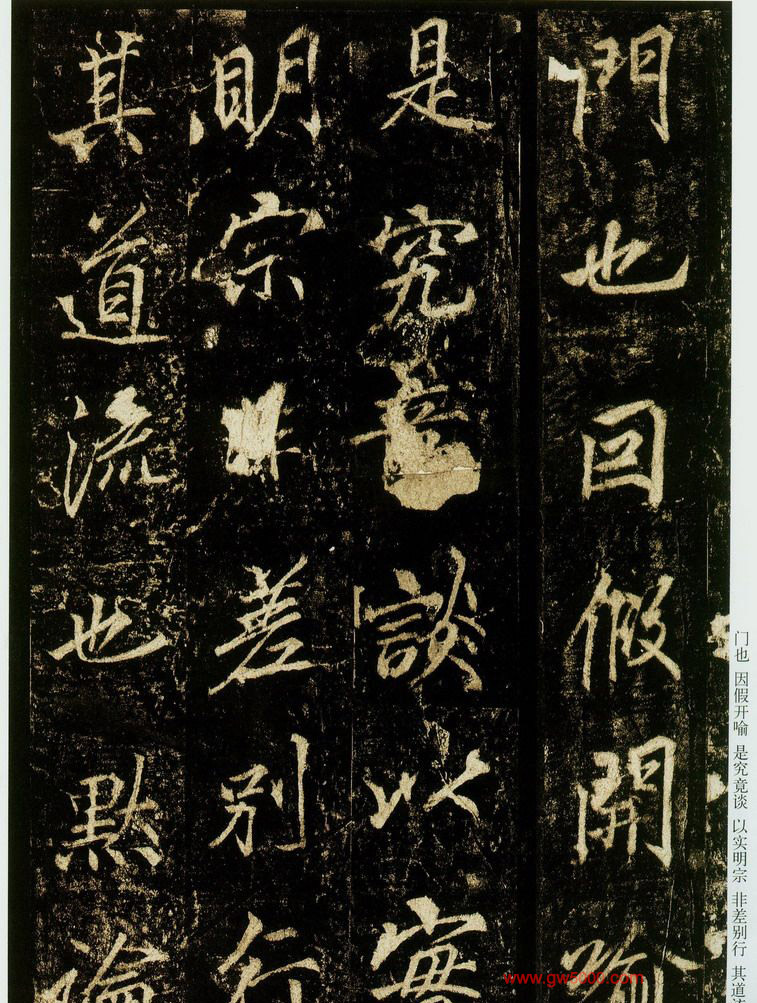 門也因假開喻
是究竟談以實
明宗非差別行
其道流也點淪
门也 因假开喻 是究竟谈 以实明宗 非差别行 其道流
www.gw5000.com